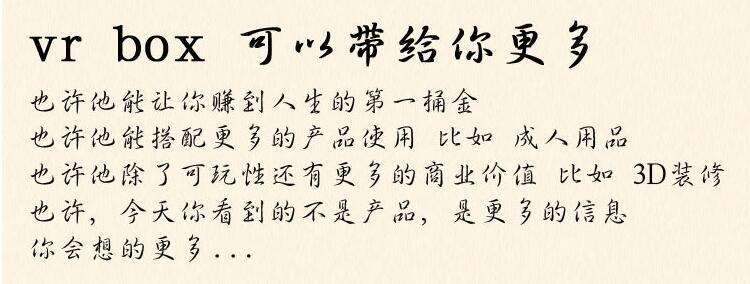 vr box 可以带给你更多
也许他能让你赚到人生的第一桶金
也许他能搭配更多的产品使用 比如 成人用品
也许他除了可玩性还有更多的商业价值 比如 3D装修
也许，今天你看到的不是产品，是更多的信息
你会想的更多...